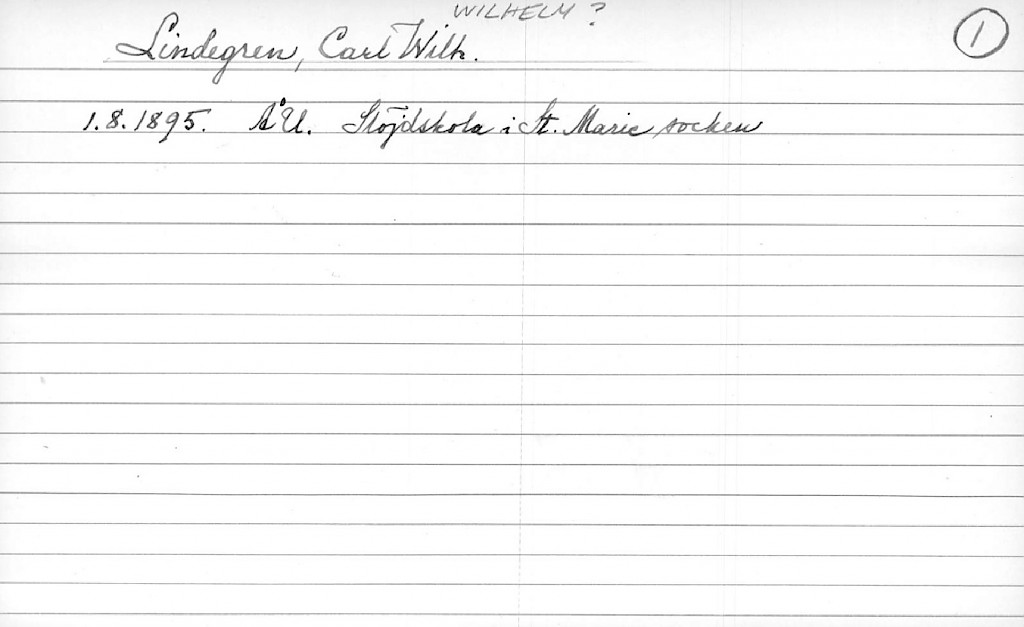 WILHELM ?
Lindegren, Carl Wilh. 1
1.8.1895. ÅU. Slöjdskola i St. Marie socken